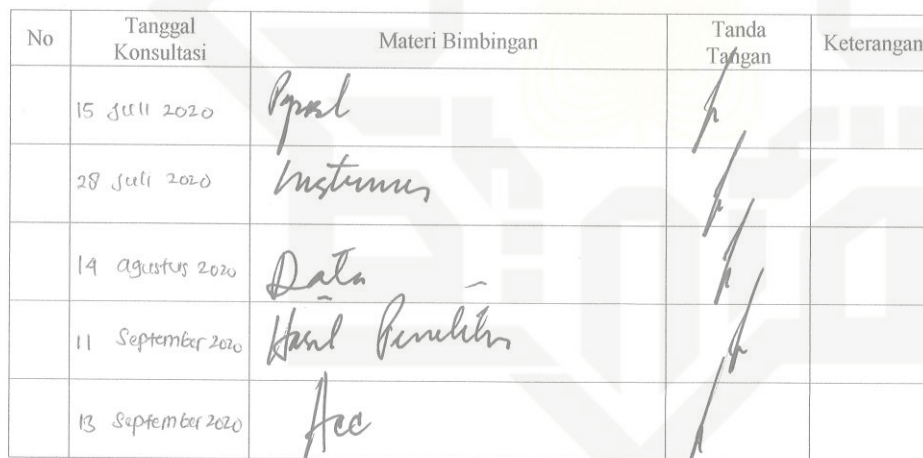 No Tanggal Konsultasi Materi Bimbingan Tanda Tangan Keterangan
15 Juli 2020
28 Juli 2020 Instrumen
14 Agustus 2020 Data
11 September 2020 Hasil Penelitian
13 September 2020 Acc